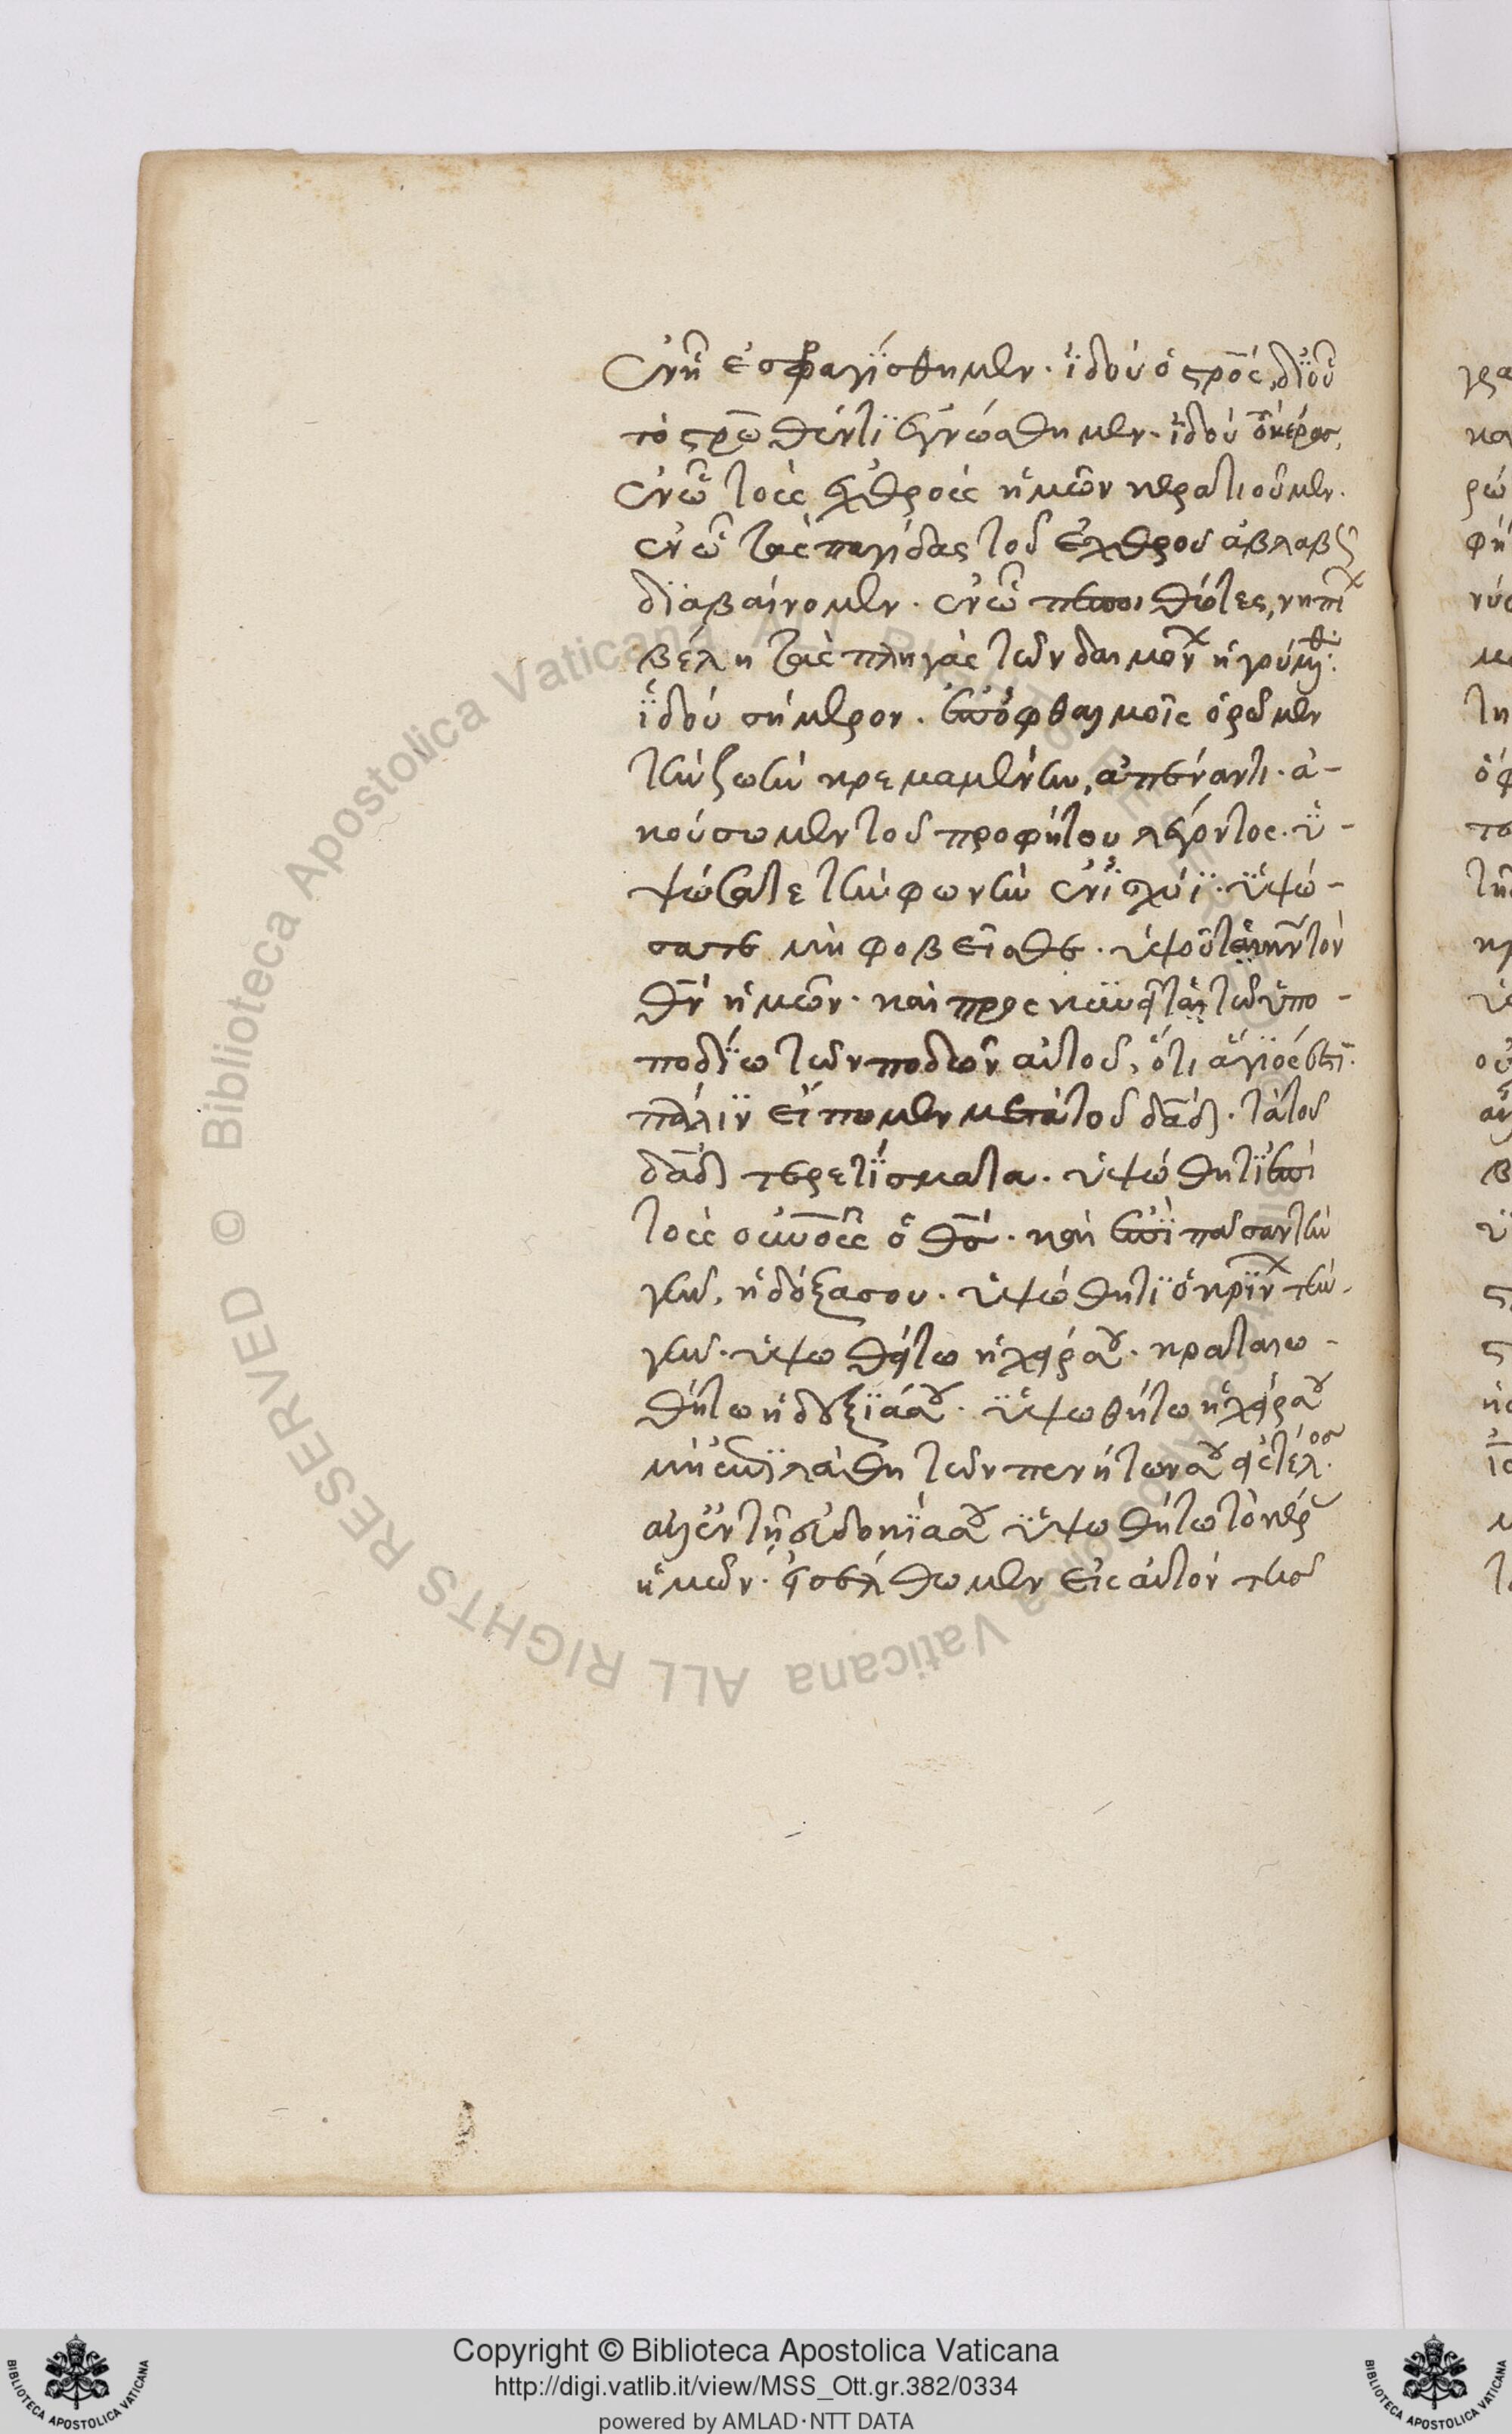 ἐν ᾧ ἐσφραγΐσθημεν. ἰδοὺ ὁ στρο̅ς, δι οὗ
τὸ στρω̅θέντϊ ἐγνώσθημεν. ἰδοὺ ὁ κέρας,
ἐν ᾧ τοὺς ἐχθροὺς ἡμῶν κερατιοῦμεν.
ἐν ᾧ τὰς παγίδας τοῦ ἐχθροῦ ἀβλαβῶς
διαβαίνομεν. ἐν ᾧ πεποιθότες, νηπί
βέλη τὰς πληγὰς τῶν δαιμόν ἡγούμεθ:
ἰδοὺ σήμερον. ἐπ ὀφθαλμοῖς ὁρῶμεν
τὴν ζωὴν κρεμαμένην, ἀπέναντι. ἀ-
κούσωμεν τοῦ προφήτου λέγοντος. ὑ-
ψώσατε τὴν φωνὴν ἐν ϊσχύϊ. ὑψώ-
σατε μὴ φοβεῖσθε. ὑψοῦτε κν̅ τὸν
θν̅ ἡμῶν. καὶ προσκυνεῖτε τῷ ὑπο-
ποδΐω τῶν ποδῶν αὐτοῦ, ὅτι ἅγϊός ἐστϊ.
πάλιν εἴπομεν μετὰ τοῦ δα̅δ. τὰ τοῦ
δα̅δ τερετΐσματα. ὑψώθητϊ ἐπὶ
τοὺς οὐνο̅ὺς ὁ θσ̅. καὶ ἐπῒ πᾶσαν τὴν
γῆν, ἡ δόξα σου. ὑψώθητϊ ὁ κρίν τὴν
γῆν. ὑψωθήτω ἡ χείρ σου. κραταιω-
θήτω ἡ δεξϊά σου. ὑψωθήτω ἡ χείρ σου
μὴ ἐπϊλάθη τῶν πενήτων σου εἰς τέλος.
ἀλλ ἐν τῇ εὐδοκίᾳ σου ὑψωθήτω τὸ κέρ
ἡμῶν. εἰσέλθωμεν εἰς αὐτὸν τὴν
Copyright © Biblioteca Apostolica Vaticana
http://digi.vatlib.it/view/MSS_Ott.gr.382/0334
powered by AMLAD·NTT DATA